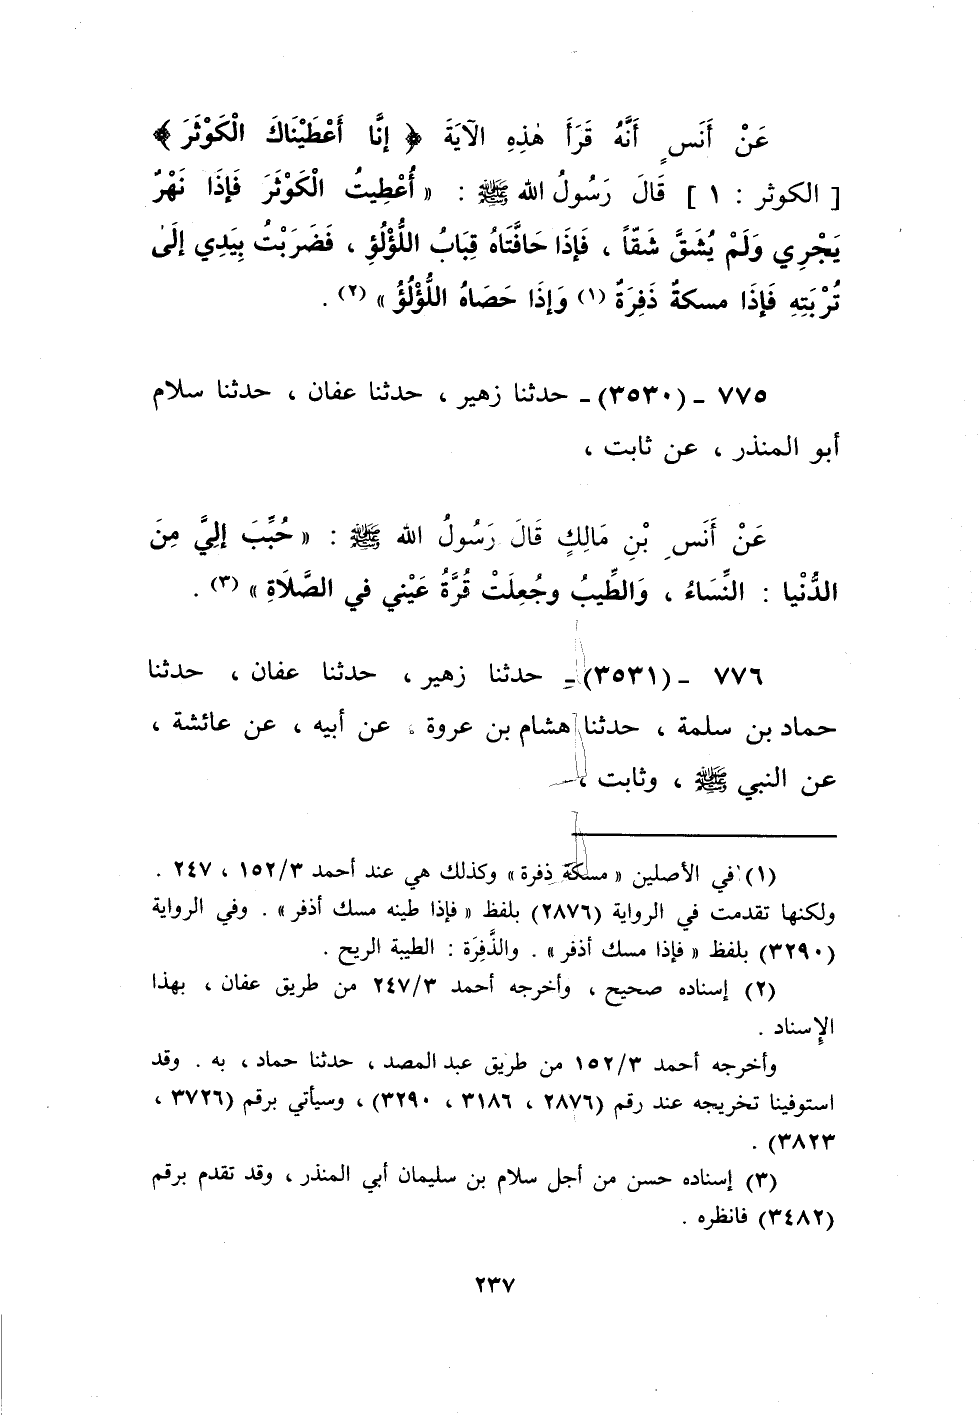 عَنْ أَنَسٍ أَنَّهُ قَرَأَ هٰذِهِ الآيَةَ ﴿ إِنَّا أَعْطَيْنَاكَ الْكَوْثَرَ ﴾
[ الكوثر : ١ ] قَالَ رَسُولُ الله ﷺ : « أُعْطِيتُ الْكَوْثَرَ فَإِذَا نَهْرٌ
يَجْرِي وَلَمْ يُشَقَّ شَقّاً ، فَإِذَا حَافَّتَاهُ قِبَابُ اللُّؤْلُؤِ ، فَضَرَبْتُ بِيَدِي إِلَىٰ
تُرْبَتِهِ فَإِذَا مسكةٌ ذَفِرَةٌ (١) وَإِذَا حَصَاهُ اللُّؤْلُؤُ » (٢) .
٧٧٥ ـ (٣٥٣٠) ـ حدثنا زهير ، حدثنا عفان ، حدثنا سلام
أبو المنذر ، عن ثابت ،
عَنْ أَنَسِ بْنِ مَالِكٍ قَالَ رَسُولُ الله ﷺ : « حُبِّبَ إِلَيَّ مِنَ
الدُّنْيا : النِّسَاءُ ، وَالطِّيبُ وجُعِلَتْ قُرَّةُ عَيْني في الصَّلَاةِ » (٣) .
٧٧٦ ـ (٣٥٣١) ـ حدثنا زهير ، حدثنا عفان ، حدثنا
حماد بن سلمة ، حدثنا هشام بن عروة ، عن أبيه ، عن عائشة ،
عن النبي ﷺ ، وثابت ،
(١) في الأصلين « مسكة ذفرة » وكذلك هي عند أحمد ١٥٢/٣ ، ٢٤٧ .
ولكنها تقدمت في الرواية (٢٨٧٦) بلفظ « فإذا طينه مسك أذفر » . وفي الرواية
(٣٢٩٠) بلفظ « فإذا مسك أذفر » . والذَّفِرَة : الطيبة الريح .
(٢) إسناده صحيح ، وأخرجه أحمد ٢٤٧/٣ من طريق عفان ، بهذا
الإسناد .
وأخرجه أحمد ١٥٢/٣ من طريق عبد المصد ، حدثنا حماد ، به . وقد
استوفينا تخريجه عند رقم (٢٨٧٦ ، ٣١٨٦ ، ٣٢٩٠) ، وسيأتي برقم (٣٧٢٦ ،
٣٨٢٣) .
(٣) إسناده حسن من أجل سلام بن سليمان أبي المنذر ، وقد تقدم برقم
(٣٤٨٢) فانظره .
٢٣٧